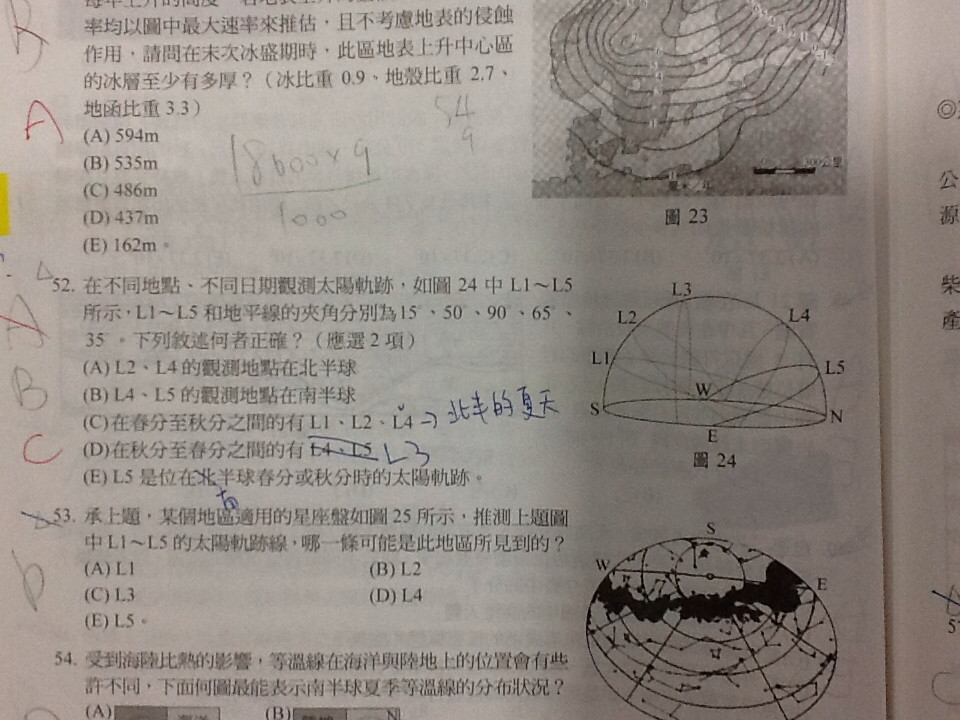 率均以圖中最大速率來推估，且不考慮地表的侵蝕
作用，請問在末次冰盛期時，此區地表上升中心區
的冰層至少有多厚？（冰比重 0.9、地殼比重 2.7、
地函比重 3.3）
A
(A) 594m
(B) 535m
(C) 486m
(D) 437m
(E) 162m。
54
9
1000
300公里
圖 23
52. 在不同地點、不同日期觀測太陽軌跡，如圖 24 中 L1～L5
所示，L1～L5 和地平線的夾角分別為15°、50°、90°、65°、
35°。下列敘述何者正確？（應選 2 項）
(A) L2、L4 的觀測地點在北半球
(B) L4、L5 的觀測地點在南半球
(C)在春分至秋分之間的有 L1、L2、L4 → 北半的夏天
(D)在秋分至春分之間的有 L4、L5 L3
(E) L5 是位在北半球春分或秋分時的太陽軌跡。
A
B
C
L3
L2
L4
L1
L5
W
S
N
E
圖 24
53. 承上題，某個地區適用的星座盤如圖 25 所示，推測上題圖
中 L1～L5 的太陽軌跡線，哪一條可能是此地區所見到的？
(A) L1
(B) L2
(C) L3
(D) L4
(E) L5。
S
W
E
54. 受到海陸比熱的影響，等溫線在海洋與陸地上的位置會有些
許不同，下面何圖最能表示南半球夏季等溫線的分布狀況？
(A)
(B)
N
◎
公
源
柴
產